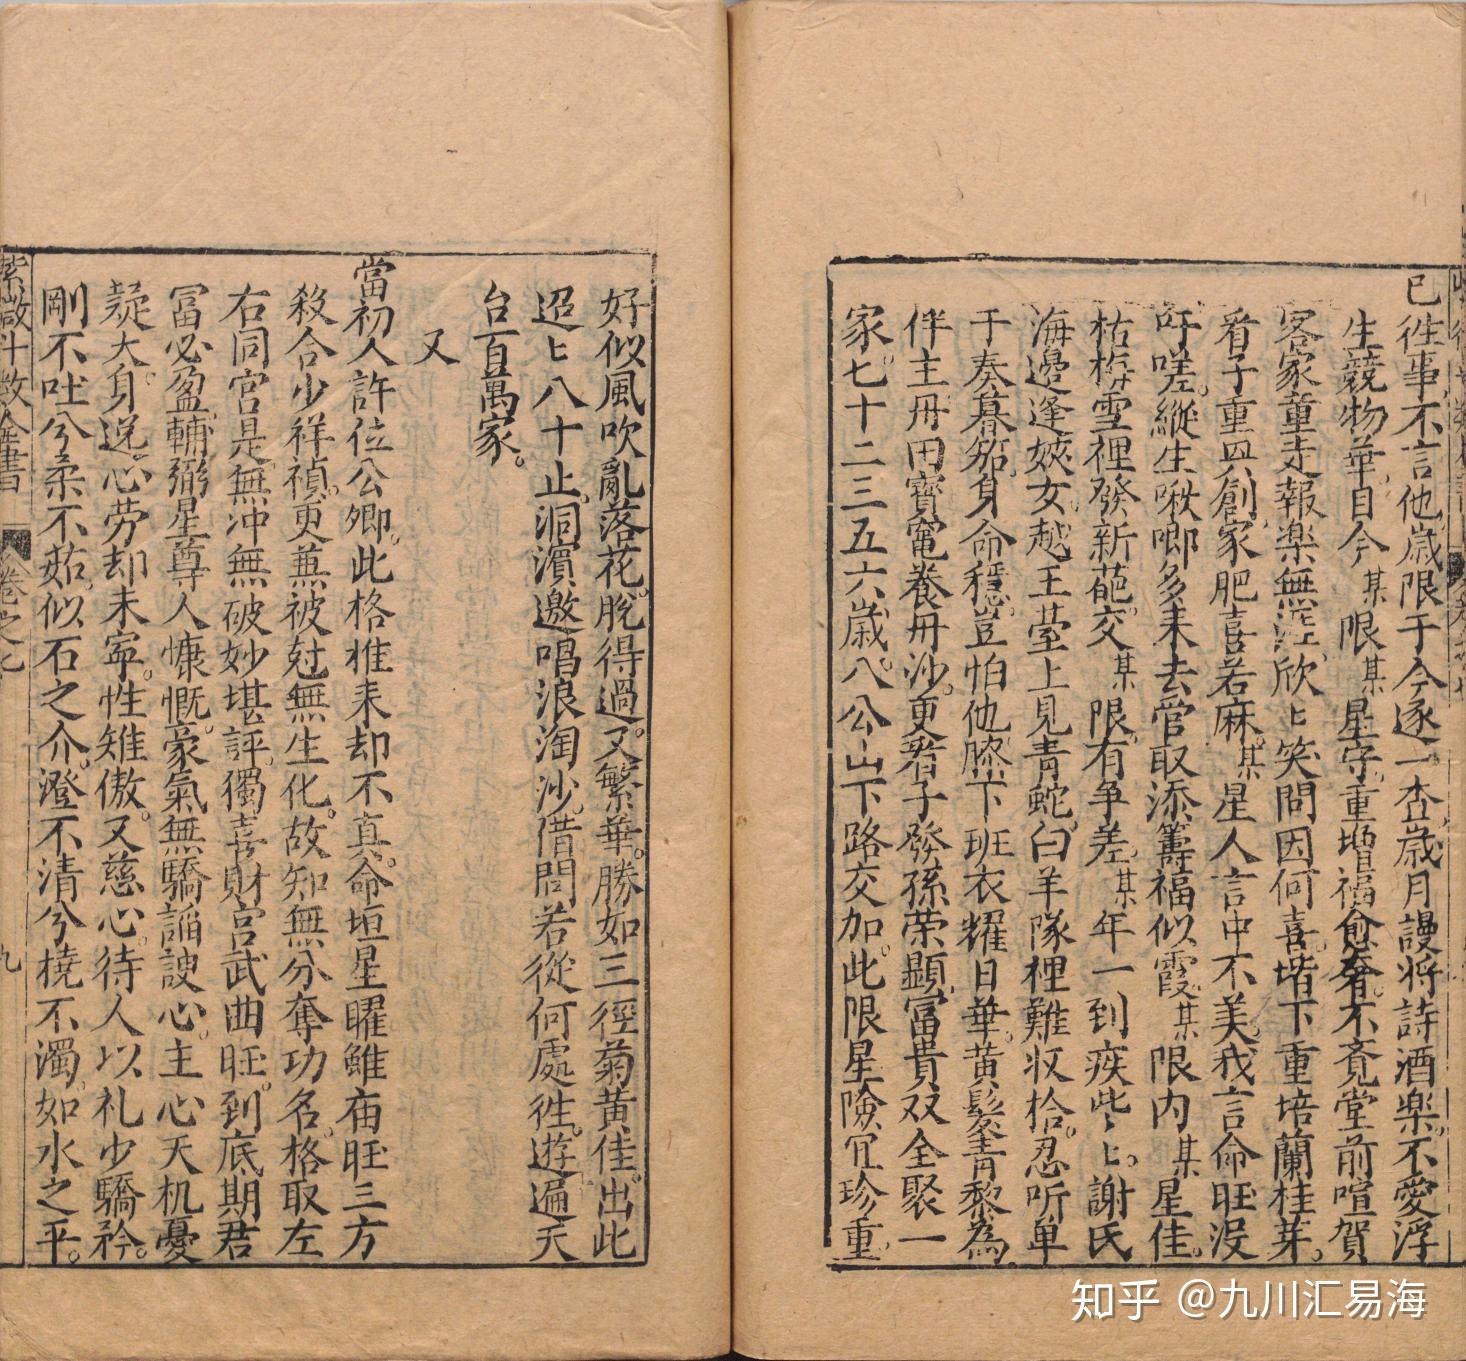 已徃事不言他歲限于今逐一查歲月謾將詩酒楽不愛浮
生競物華自今某限某星守重增福愈奢不竟堂前喧賀
客家童走報楽無涯欣〻笑問因何喜堦下重培蘭桂芽
看子重興創家肥喜若麻某星人言中不美我言命旺没
吁嗟縱生啾唧多来去管取添籌福似霞某限内某星佳
枯梅雪裡發新葩交某限有争差某年一到疾些〻謝氏
海邊逢娾女越王䑓上見青蛇白羊隊裡難収拾忍听单
于奏暮笳身命穩豈怕他膝下班衣耀日華黄髮青黎為
伴主丹田寳竃養丹沙更看子發孫荣顯冨貴双全聚一
家七十二三五六歲八公山下路交加此限星險冝珍重
好似風吹亂落花脱得過又繁華勝如三徑菊黄佳出此
迢〻八十止洞濵邀唱浪淘沙借問若從何處徃遊遍天
台百萬家
又
當初人許位公卿此格推来却不真命垣星曜雖庙旺三方
殺合少祥禎更兼被尅無生化故知無分奪功名格取左
右同宮是無冲無破妙堪評獨喜財宮武曲旺到底期君
冨必盈輔弼星尊人慷慨豪氣無驕謟諛心主心天机憂
疑大身逸心劳却未寕性雖傲又慈心待人以礼少驕矜
剛不吐兮柔不茹似石之介澄不清兮撓不濁如水之平
紫微斗数全書 卷之七 九
知乎 @九川汇易海